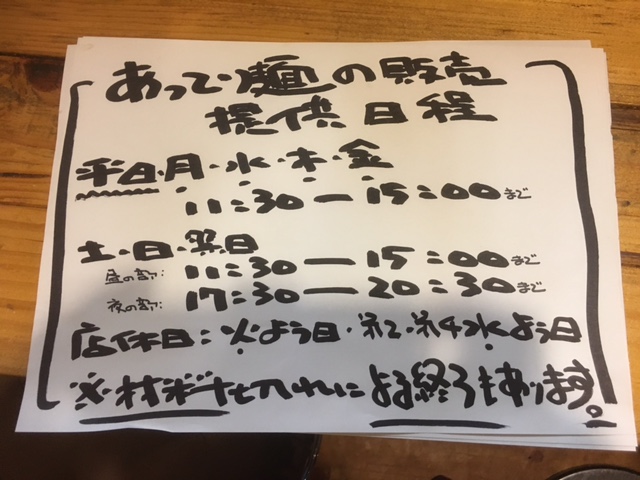 あってり麺の販売
提供日程
平日・月・水・木・金
11:30ー15:00まで
土・日・祭日
昼の部: 11:30ー15:00まで
夜の部: 17:30ー20:30まで
店休日:火よう日・第2・第4水よう日
※材料仕入れによる終了もあります。